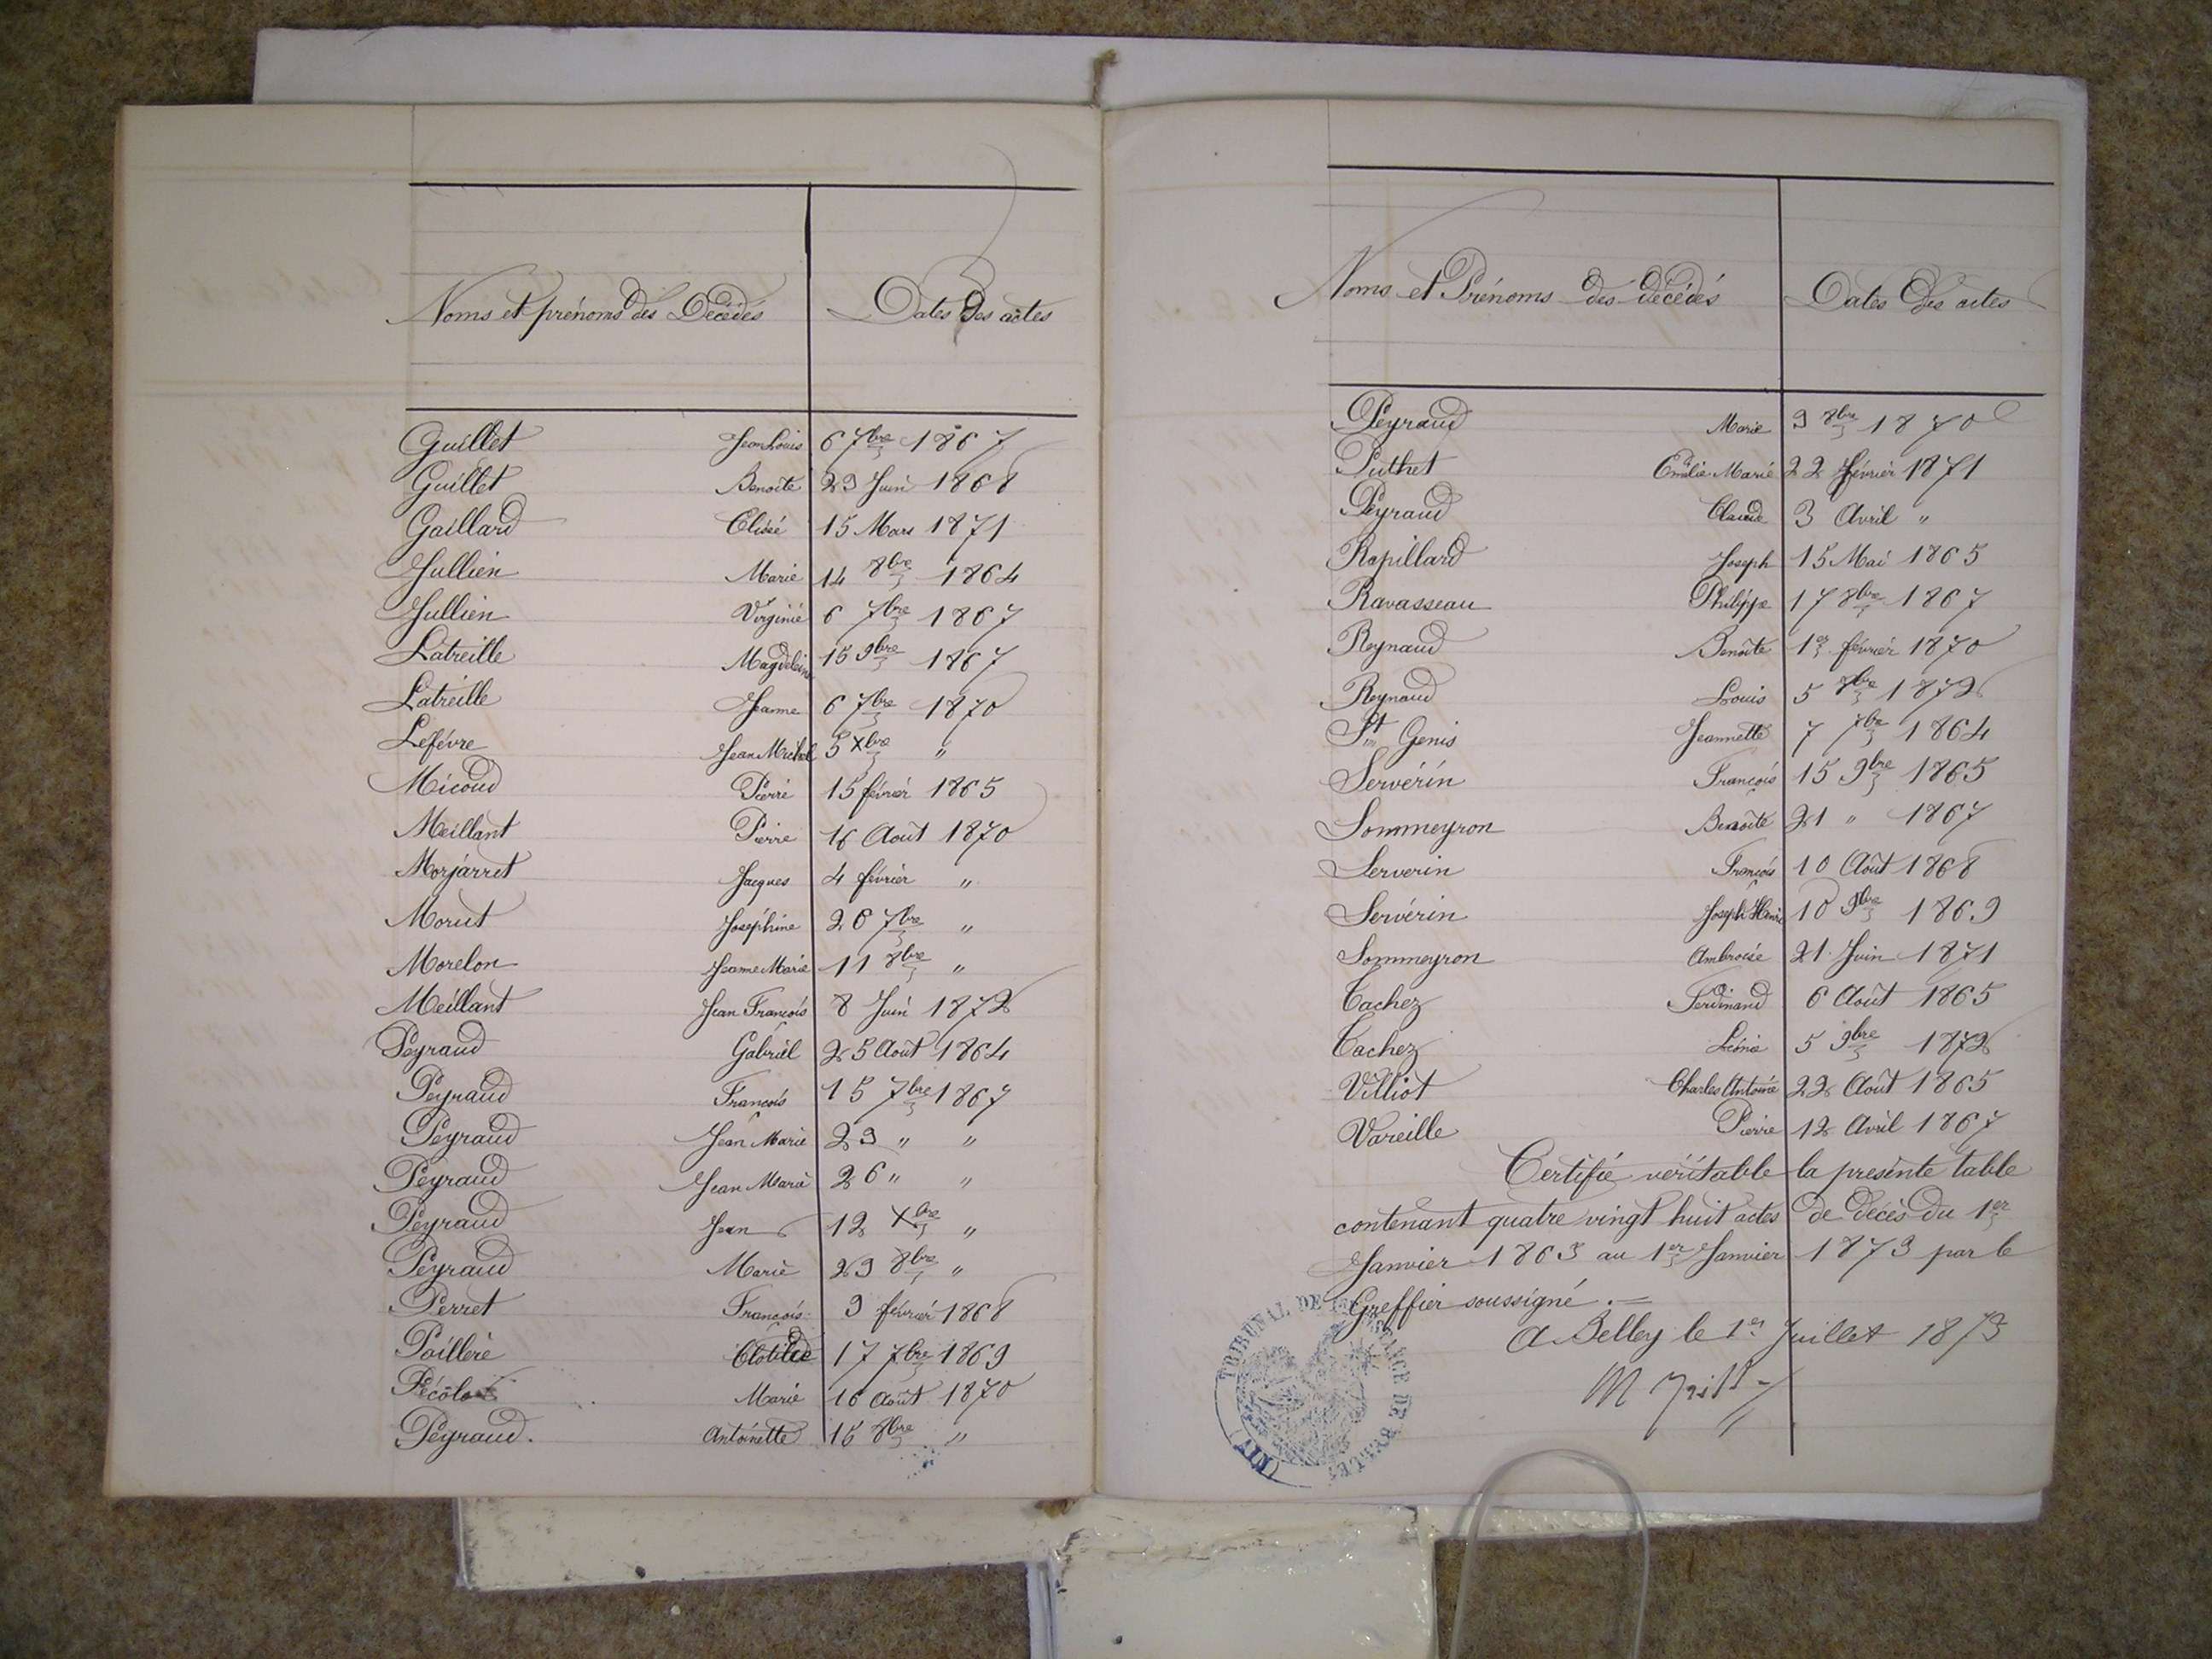 Noms et prénoms des Décédés Dates des actes
Guillet Jean Louis 6 7bre 1867
Guillet Benoîte 23 Juin 1868
Gaillard Elisée 15 Mars 1871
Jullien Marie 14 8bre 1864
Jullien Virginie 6 7bre 1867
Latreille Magdeleine 15 9bre 1867
Latreille Jeanne 6 7bre 1870
Lefévre Jean Michel 5 Xbre "
Micoud Pierre 15 février 1865
Meillant Pierre 16 Août 1870
Morjarret Jacques 4 février "
Morut Joséphine 26 7bre "
Morelon Jeanne Marie 11 8bre "
Meillant Jean François 8 Juin 1872
Peyraud Gabriel 25 Août 1864
Peyraud François 15 7bre 1867
Peyraud Jean Marie 23 " "
Peyraud Jean Marie 26 " "
Peyraud Jean 12 Xbre "
Peyraud Marie 23 8bre "
Perret François 3 février 1868
Poillère Clotilde 17 7bre 1869
Pécolot Marie 16 Août 1870
Peyraud. Antoinette 15 8bre "
Noms et Prénoms des décédés Dates des actes
Peyraud Marie 3 8bre 1870
Puthet Emélie Marie 22 février 1871
Peyraud Claude 3 Avril "
Rapillard Joseph 15 Mai 1865
Ravasseau Philippe 17 8bre 1867
Reynaud Benoîte 1er février 1870
Reynaud Louis 5 8bre 1872
St Genis Jeannette 7 7bre 1864
Servérin François 15 9bre 1865
Sommeyron Benoîte 21 " 1867
Serverin François 10 Août 1868
Servérin Joseph Henri 10 9bre 1869
Sommeyron Ambroise 21 Juin 1871
Tachez Ferdinand 6 Août 1865
Tachez Léonie 5 9bre 1872
Villiot Charles Antoine 22 Août 1865
Vareille Pierre 12 Avril 1867
Certifié véritable la presente table
contenant quatre vingt huit actes de décès du 1er
Janvier 1863 au 1er Janvier 1873 par le
Greffier soussigné.
A Belley le 1er Juillet 1873
TRIBUNAL DE 1ère INSTANCE DE BELLEY (AIN)